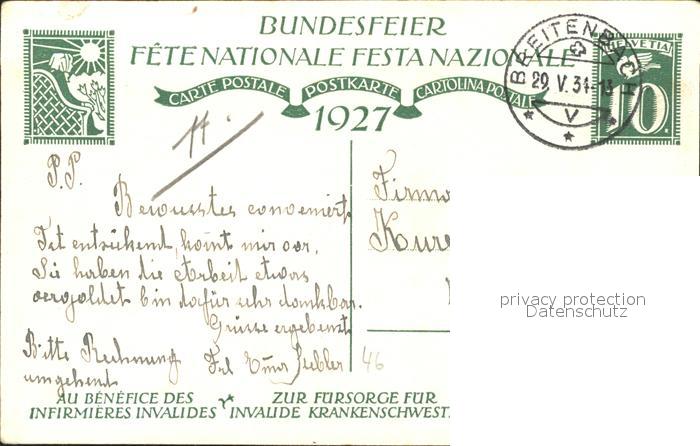 BUNDESFEIER
FÊTE NATIONALE FESTA NAZIONALE
CARTE POSTALE POSTKARTE CARTOLINA POSTALE
1927
BREITENBACH
29. V. 31-13
V
HELVETIA
10
P.P.
Bewusstes conveniert
Ist entzückend, kommt mir vor,
Sie haben die Arbeit etwas
vergoldet bin dafür sehr dankbar.
Grüsse ergebenst
Bitte Rechnung
umgehend
Frl
46
Firma
privacy protection
Datenschutz
AU BÉNÉFICE DES
INFIRMIÈRES INVALIDES
ZUR FÜRSORGE FÜR
INVALIDE KRANKENSCHWEST